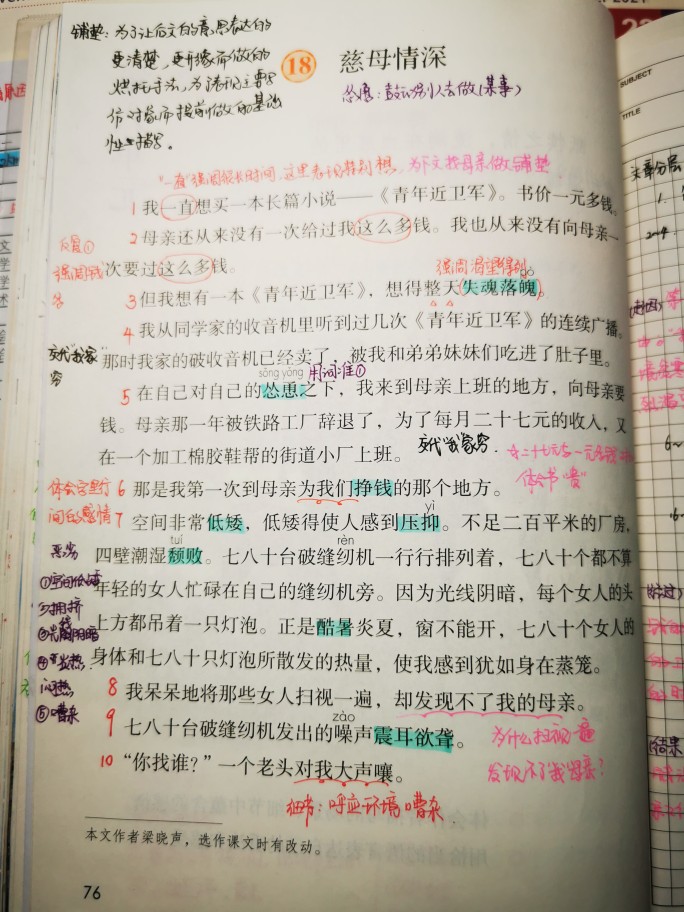 铺垫：为了让后文的意思表达的
更清楚，更形象而做的
烘托手法，为表现主要
对象而提前做的基础
性描写。
18 慈母情深
怂恿：鼓动别人去做(某事)
"一直"强调很长时间，这里表明特别想，为下文找母亲做铺垫
1 我一直想买一本长篇小说——《青年近卫军》。书价一元多钱。
2 母亲还从来没有一次给过我这么多钱。我也从来没有向母亲一
反复①
强调钱
多
次要过这么多钱。
强调渴望得到
pò
3 但我想有一本《青年近卫军》，想得整天失魂落魄。
4 我从同学家的收音机里听到过几次《青年近卫军》的连续广播。
交代"我"家
穷
那时我家的破收音机已经卖了，被我和弟弟妹妹们吃进了肚子里。
sǒng yǒng
用词准①
5 在自己对自己的怂恿之下，我来到母亲上班的地方，向母亲要
钱。母亲那一年被铁路工厂辞退了，为了每月二十七元的收入，又
在一个加工棉胶鞋帮的街道小厂上班。
交代"我"家穷。
二十七元与一元多钱
体会书"贵"
体会字里行
间的感情
6 那是我第一次到母亲为我们挣钱的那个地方。
yì
7 空间非常低矮，低矮得使人感到压抑。不足二百平米的厂房，
tuí
rèn
四壁潮湿颓败。七八十台破缝纫机一行行排列着，七八十个都不算
年轻的女人忙碌在自己的缝纫机旁。因为光线阴暗，每个女人的头
上方都吊着一只灯泡。正是酷暑炎夏，窗不能开，七八十个女人的
身体和七八十只灯泡所散发的热量，使我感到犹如身在蒸笼。
恶劣
①空间低矮
②拥挤
③光线阴暗
④
闷热
⑤嘈杂
8 我呆呆地将那些女人扫视一遍，却发现不了我的母亲。
zào
9 七八十台破缝纫机发出的噪声震耳欲聋。
为什么扫视一遍
发现不了我母亲？
10 "你找谁？"一个老头对我大声嚷。
细节：呼应环境嘈杂
本文作者梁晓声，选作课文时有改动。
76
SUBJECT
TITLE
文章分层